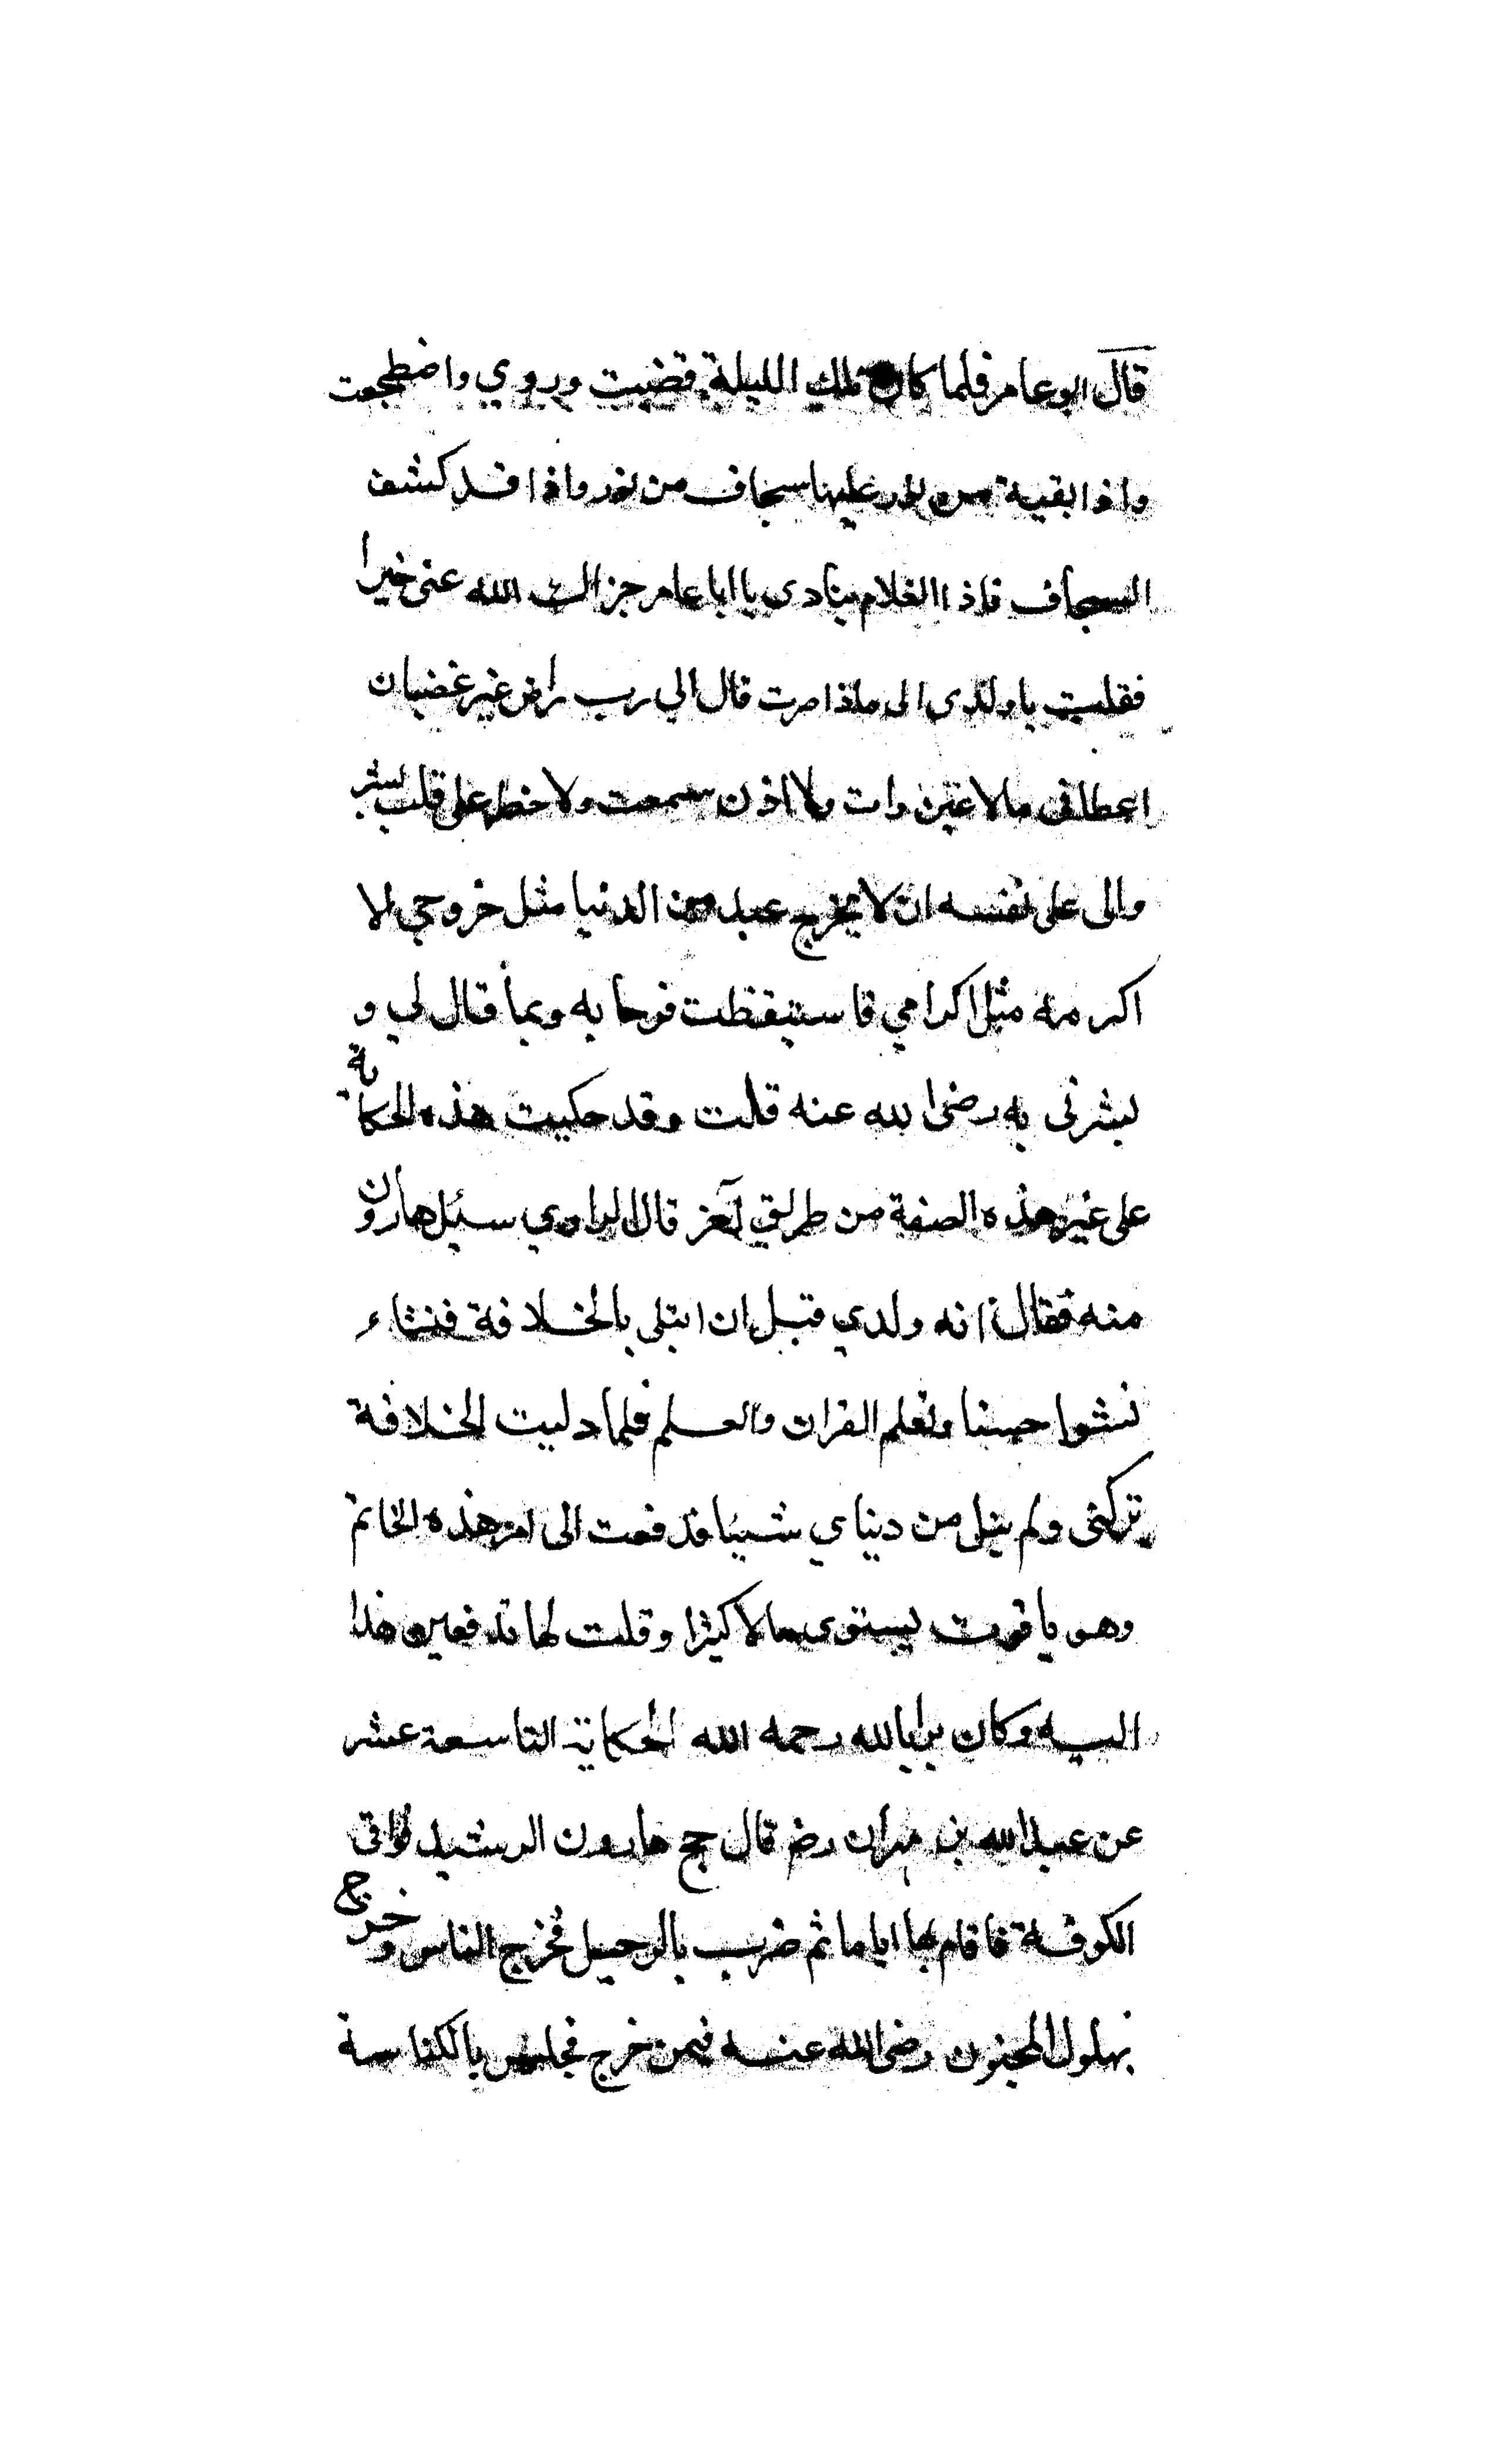 قال ابو عامر فلما كان تلك الليلة قضيت وردي واضطجعت
واذا بقبة من نور عليها سجاف من نور واذا قد كشف
السجاف فاذا الغلام ينادي يا ابا عامر جزاك الله عني خيرا
فقلت يا ولدي الى ماذا صرت قال الي رب راض غير غضبان
اعطاني ما لا عين رات ولا اذن سمعت ولا خطر على قلب بشر
والى على نفسه ان لا يخرج عبد من الدنيا مثل خروجي الا
اكرمه مثل اكرامي فاستيقظت فرحا به وبما قال لي و
بشرني به رضى الله عنه قلت وقد حكيت هذه الحكاية
على غير هذه الصفة من طريق آخر قال الراوي سئل هارون
منه فقال انه ولدي قبل ان ابتلى بالخلافة فنشاء
نشوا حسنا وتعلم القران والعلم فلما وليت الخلافة
تركني ولم ينل من ديناي شيئا فدفعت الى امه هذه الخاتم
وهو ياقوت يستوى مالا كثيرا وقلت لها تدفعين هذا
اليه وكان برا بالله رحمه الله الحكاية التاسعة عشر
عن عبد الله بن مهران رضه قال حج هارون الرشيد فوافى
الكوفة فاقام بها اياما ثم ضرب بالرحيل فخرج الناس وخرج
بهلول المجنون رضى الله عنه فيمن خرج فجلس بالكناسة